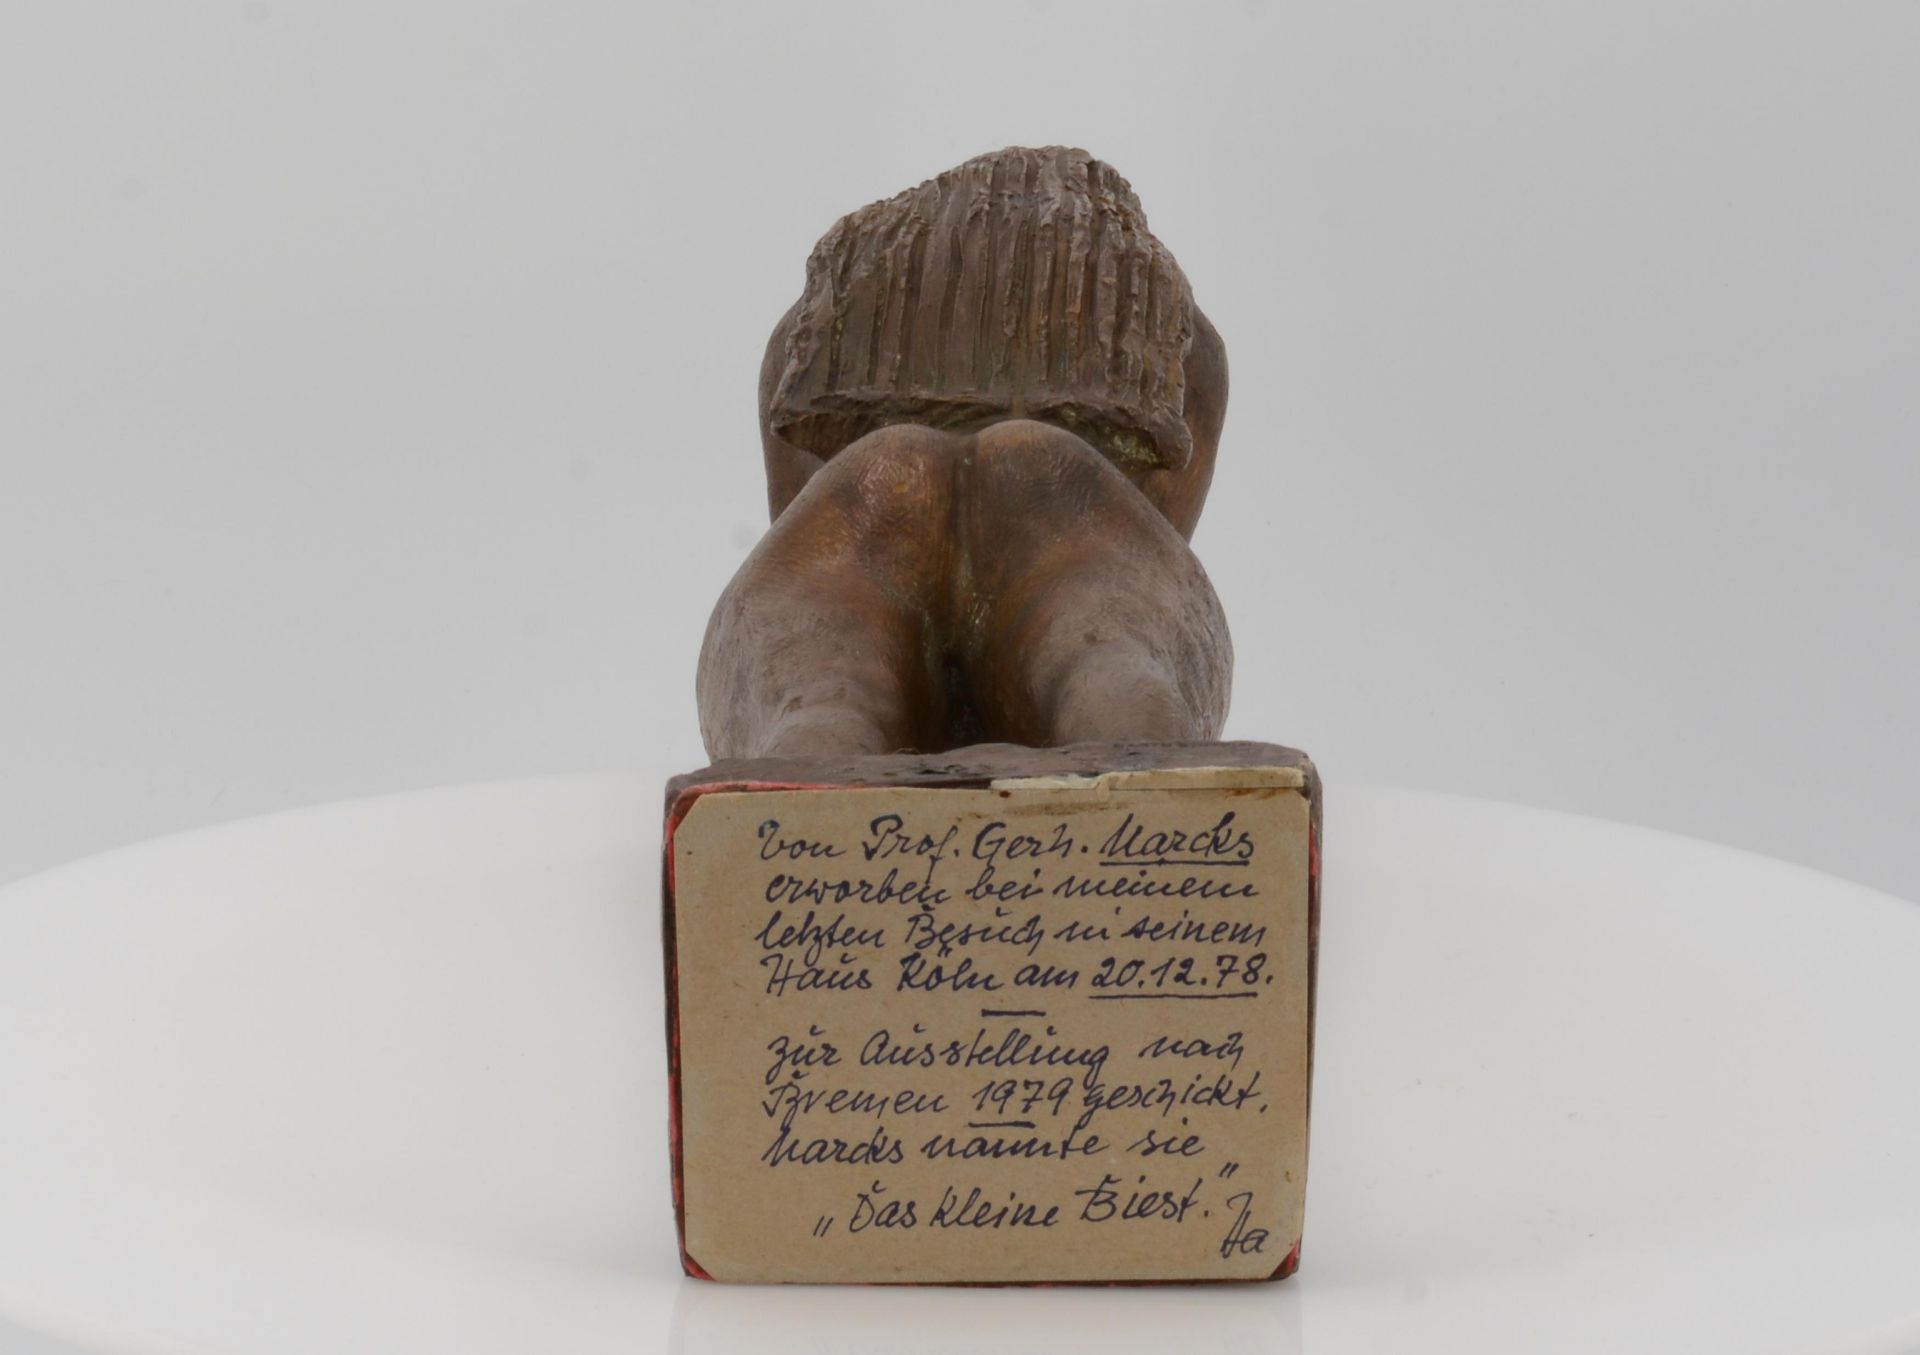 Von Prof. Gerh. Marcks
erworben bei meinem
letzten Besuch in seinem
Haus Köln am 20.12.78.
zur Ausstellung nach
Bremen 1979 geschickt.
Marcks nannte sie
„Das kleine Biest."
Ha